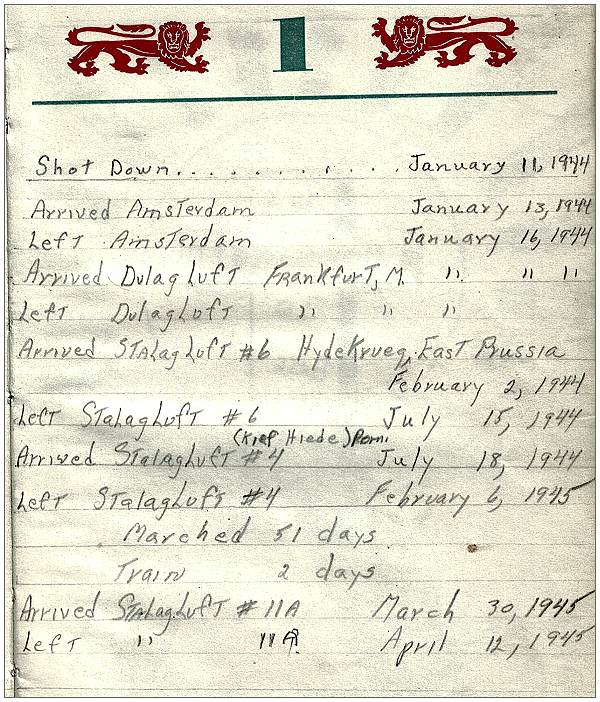 1
Shot Down............January 11, 1944
Arrived Amsterdam January 13, 1944
Left Amsterdam January 16, 1944
Arrived Dulag Luft Frankfurt, M. " " "
Left Dulag Luft " " "
Arrived Stalag Luft #6 Hydekrueg, East Prussia
February 2, 1944
Left Stalag Luft #6 July 15, 1944
(Kief Hiede) Pom.
Arrived Stalag Luft #4 July 18, 1944
Left Stalag Luft #4 February 6, 1945
Marched 51 days
Train 2 days
Arrived Stalag Luft #11A March 30, 1945
Left " 11A April 12, 1945